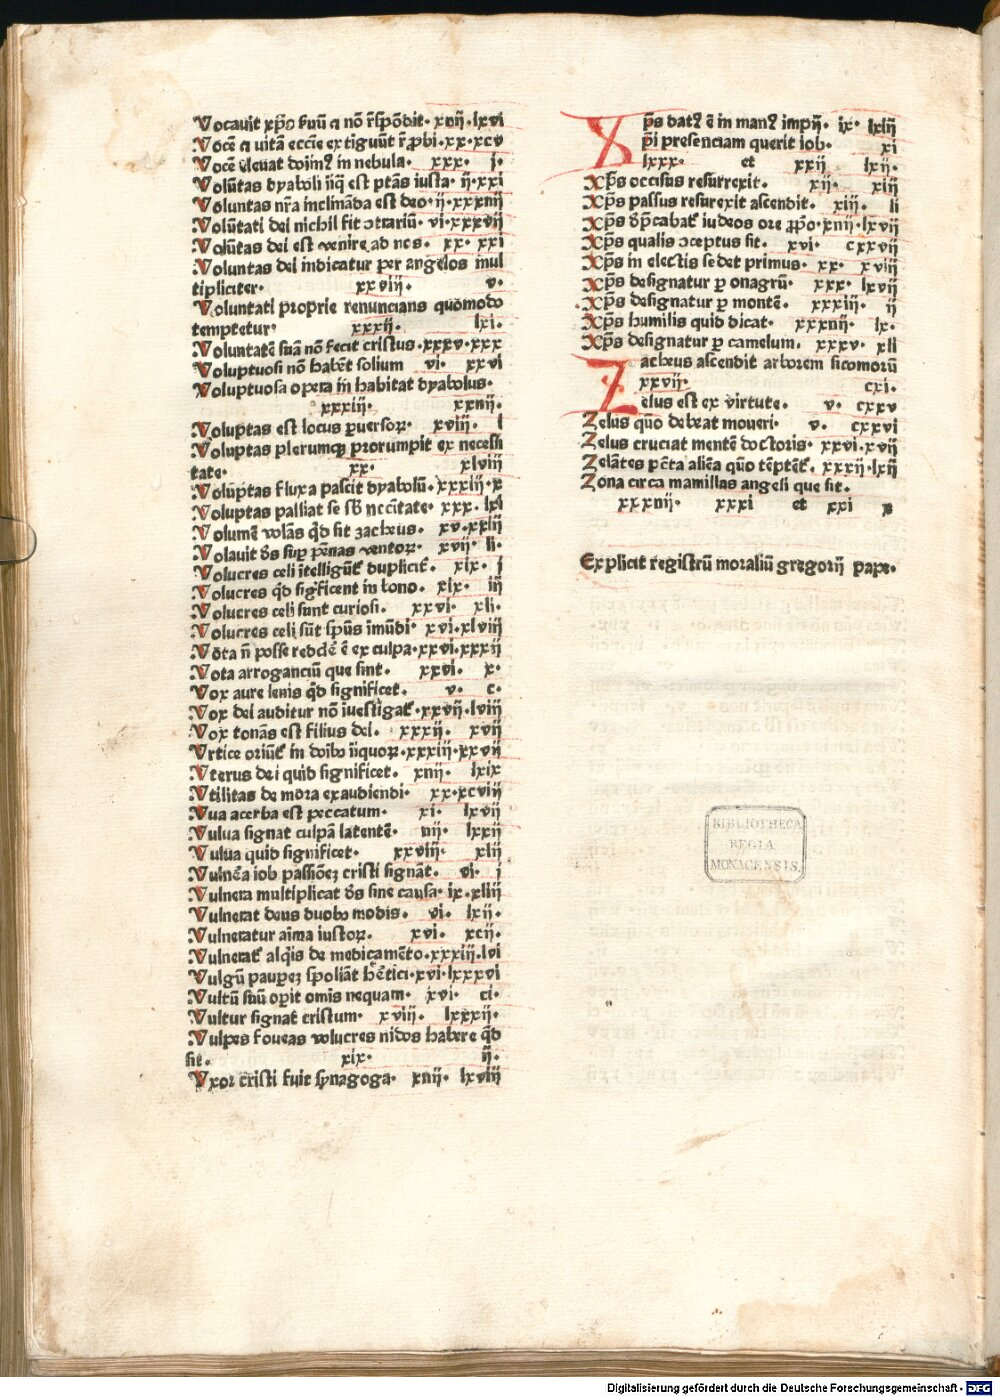 Vocauit xp̄s suū ⁊ nō r̄spōdit· xvij· lxvi
Vocē ⁊ vitā eccīe extiguūt r̄ꝓbi· xx· xcv
Vocē eleuat doīm⁹ in nebula· xxx· j·
Volūtas dyaboli iīq̄ est ptās iusta· ij· xxi
Voluntas nr̄a inclināda est deo· ij· xxxvij
Volūtati dei nichil fit ↄtrariū· vi· xxxvij
Volūtas dei est venire ad nos· xx· xxi
Voluntas dei indicatur per angelos mul
tipliciter· xxviij· v·
Voluntati proprie renuncians quomodo
temptetur· xxxij· lxi·
Voluntatē suā nō fecit cristus· xxxv· xxx
Voluptuosi nō habēt solium vi· xxvi
Voluptuosa opera in habitat dyabolus·
xxxiij· xxvij·
Voluptas est locus ꝑuersoꝝ· xviij· l
Voluptas plerumqꝫ prorumpit ex necessi
tate· xx· xlviij
Voluptas fluxa pascit dyabolū· xxxiij· x
Voluptas palliat se sb̄ nccītate· xxx· lxi
Volumē volās qd̄ sit zacheus· xv· xxiij
Volauit d̄s suꝑ pēnas ventoꝝ· xvij· li·
Volucres celi ītelligūt᷑ duplicit᷑· xix· j
Volucres qd̄ sigficent in bono· xix· iij
Volucres celi sunt curiosi· xxvi· xli·
Volucres celi sūt sp̄us īmūdi· xvi· xlviij
Vota n̄ posse reddē ē ex culpa· xxvi· xxxij
Vota arroganciū que sint· xxvi· x·
Vox aure lenis qd̄ significet· v· c·
Vox dei auditur nō iuestigat᷑· xxvij· lviij
Vox tonās est filius dei· xxxij· xvij
Vrtice oriūt᷑ in doibꝰ iīquoꝝ· xxxiij· xxvij
Vterus dei quid significet· xvij· lxix
Vtilitas de mora exaudiendi· xx· xcviij
Vua acerba est peccatum· xi· lxvij
Vulua signat culpā latentē· iiij· lxxij
Vulua quid significet· xxviij· xlij
Vulnēa iob passiōeꝫ cristi signāt· vi· j
Vulnera multiplicat d̄s sine causa· ix· xliij
Vulnerat deus duobꝰ modis· vi· lxij·
Vulneratur aīma iustoꝝ· xvi· xcij·
Vulnerat᷑ alqīs de medicamēto· xxxiij· lvi
Vulgū pauꝑeꝫ spoliāt h̄etici· xvi· lxxxvi
Vultū suū oꝑit omīs nequam· xvi· ci·
Vultur signat cristum· xviij· lxxxij·
Vulpes foueas volucres nidos habere qd̄
sit· xix· ij·
Vxor cristi fuit synagoga· xvij· lxviij
Xp̄s dat⁹ ē in man⁹ impij· ix· lxiij
xp̄i presenciam querit iob· xi
lxxx· et xxij lxij·
Xp̄s occisus resurrexit· xij· xiij
Xp̄s passus resurexit ascendit· xiij· li
Xp̄s dp̄cabat᷑ iudeos ore ꝓpo· xvij· lxvij
Xp̄s qualis ↄceptus sit· xvi· cxxvij
Xp̄s in electis sedet primus· xx· xviij
Xp̄s designatur ꝑ onagrū· xxx· lxvij
Xp̄s designatur ꝑ montē· xxxiij· ij
Xp̄s humilis quid dicat· xxxvij· lx·
Xp̄s designatur ꝑ camelum· xxxv· xli
Zacheus ascendit arborem sicomorū
xxvij· cxi·
Zelus est ex virtute· v· cxxv
Zelus quō debeat moueri· v· cxxvi
Zelus cruciat mentē doctoris· xxvi· xvij
Zelātes pctā aliēa quō tēptēt᷑· xxxij· lxij
Zona circa mamillas angeli que sit·
xxxvij· xxxi et xxi x
Explicit registrū moraliū gregorij pape·
BIBLIOTHECA
REGIA
MONACENSIS.
Digitalisierung gefördert durch die Deutsche Forschungsgemeinschaft - DFG